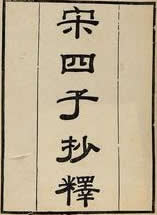 宋四子抄釋